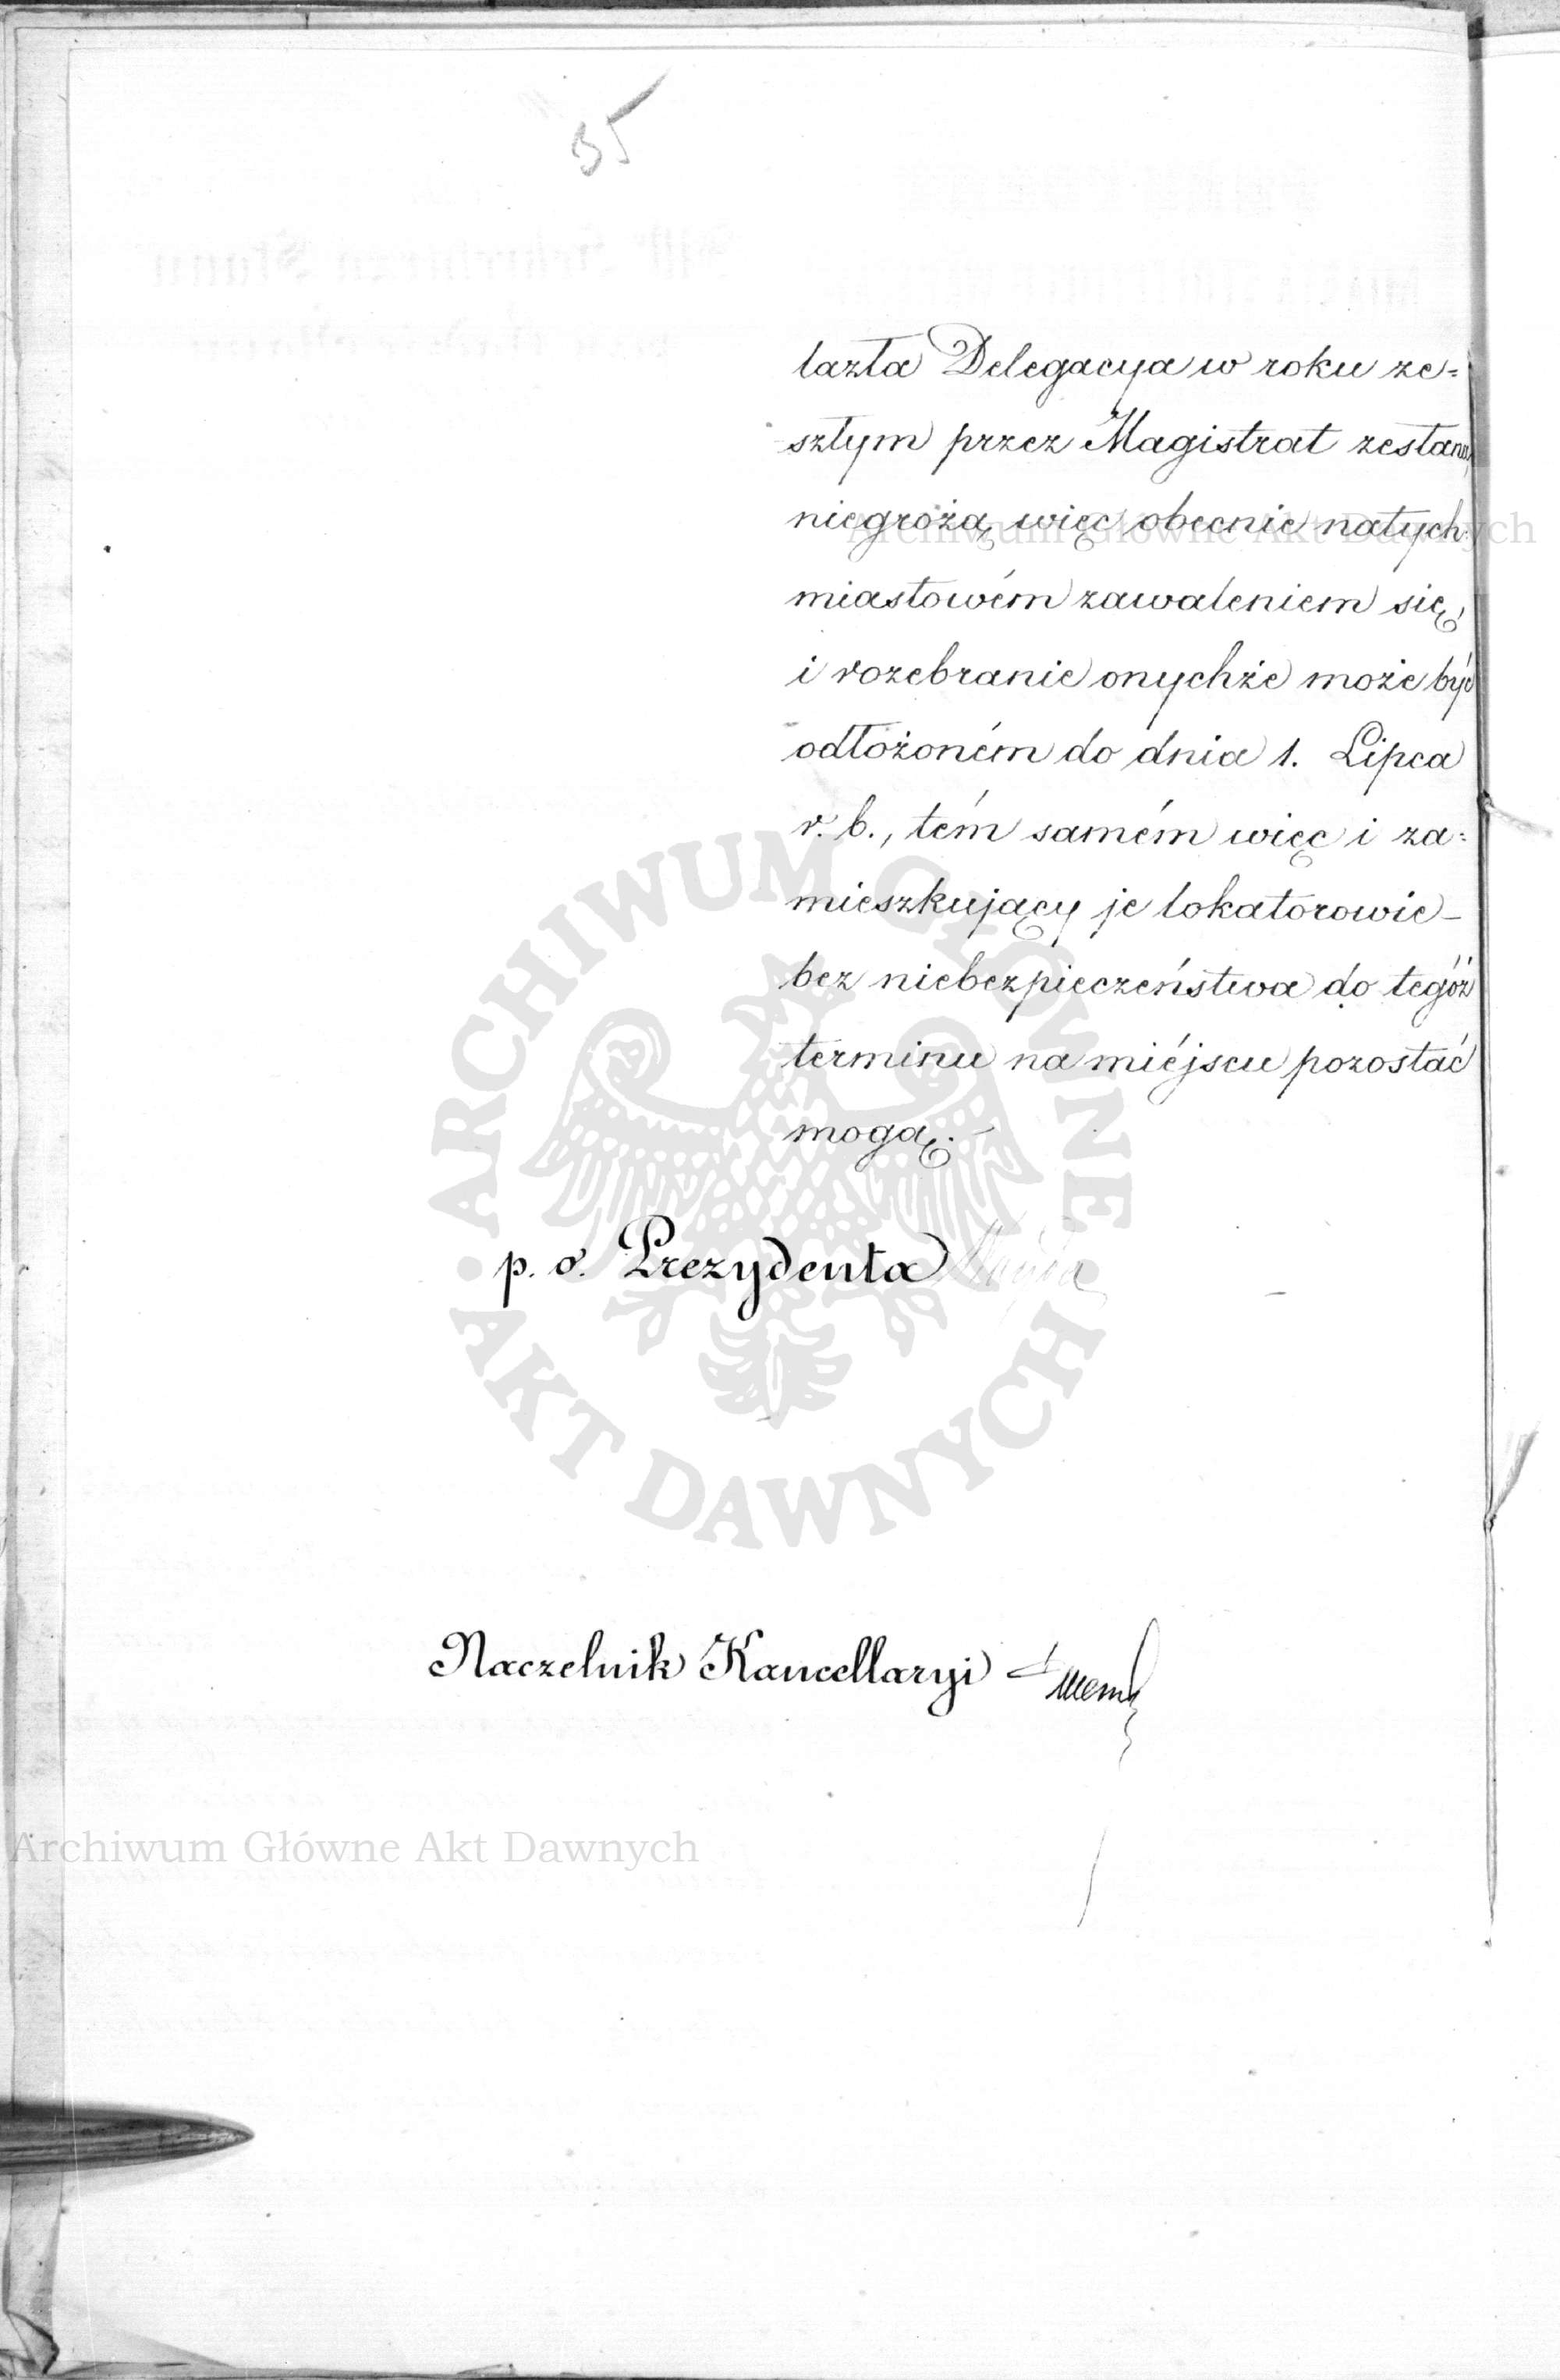 35
lazła Delegacya w roku ze=
szłym przez Magistrat zesłana,
niegrożą więc obecnie natych=
miastowém zawaleniem się,
i rozebranie onychże może być
odłożoném do dnia 1. Lipca
r. b., tém samém więc i za=
mieszkujący je lokatorowie –
bez niebezpieczeństwa do tegóż
terminu na miéjscu pozostać
mogą. –
p. o. Prezydenta
Naczelnik Kancellaryi
Archiwum Główne Akt Dawnych
ARCHIWUM GŁÓWNE AKT DAWNYCH
Archiwum Główne Akt Dawnych